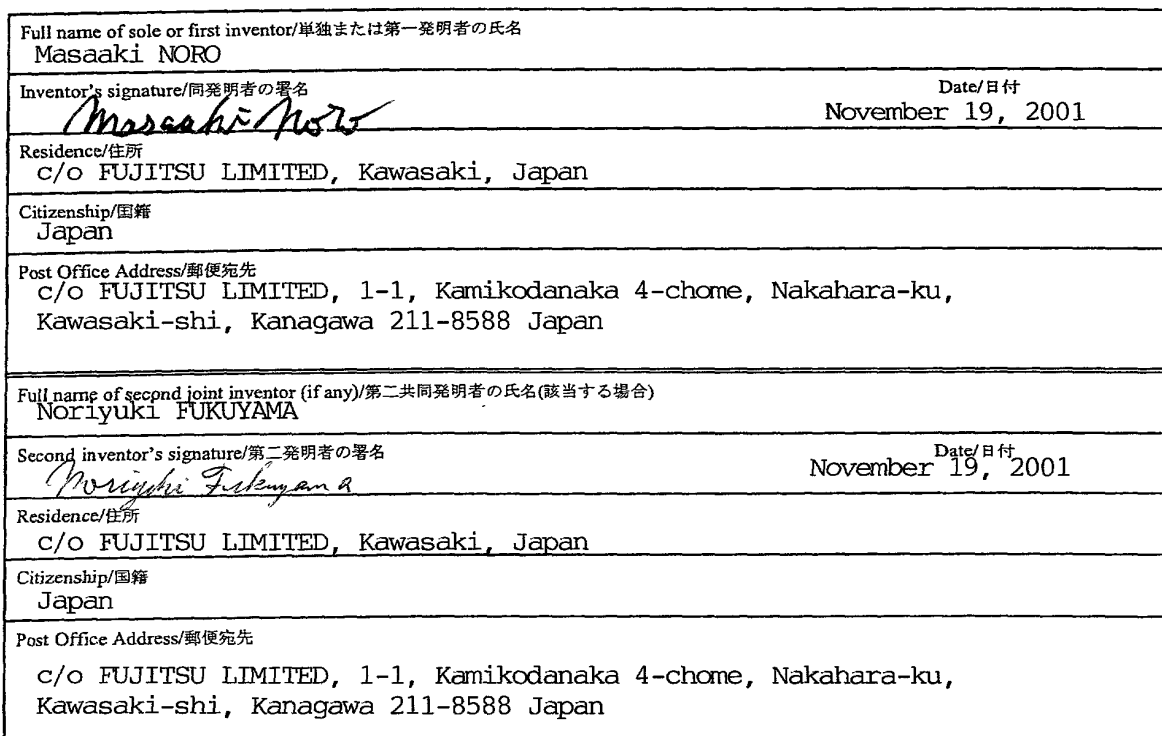 Full name of sole or first inventor/単独または第一発明者の氏名
Masaaki NORO
Inventor's signature/同発明者の署名 Date/日付
Masaaki Noro November 19, 2001
Residence/住所
c/o FUJITSU LIMITED, Kawasaki, Japan
Citizenship/国籍
Japan
Post Office Address/郵便宛先
c/o FUJITSU LIMITED, 1-1, Kamikodanaka 4-chome, Nakahara-ku,
Kawasaki-shi, Kanagawa 211-8588 Japan
Full name of second joint inventor (if any)/第二共同発明者の氏名(該当する場合)
Noriyuki FUKUYAMA
Second inventor's signature/第二発明者の署名 Date/日付
Noriyuki Fukuyama November 19, 2001
Residence/住所
c/o FUJITSU LIMITED, Kawasaki, Japan
Citizenship/国籍
Japan
Post Office Address/郵便宛先
c/o FUJITSU LIMITED, 1-1, Kamikodanaka 4-chome, Nakahara-ku,
Kawasaki-shi, Kanagawa 211-8588 Japan